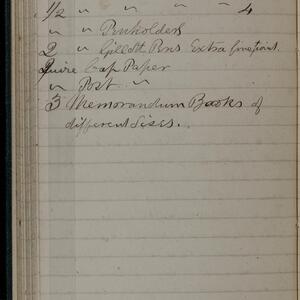 1/2 " " " " 4
" " Penholders
2 " Gillott Pens Extra fine point.
Quire Cap Paper
" Post "
3 Memorandum Books of
different Sizes.